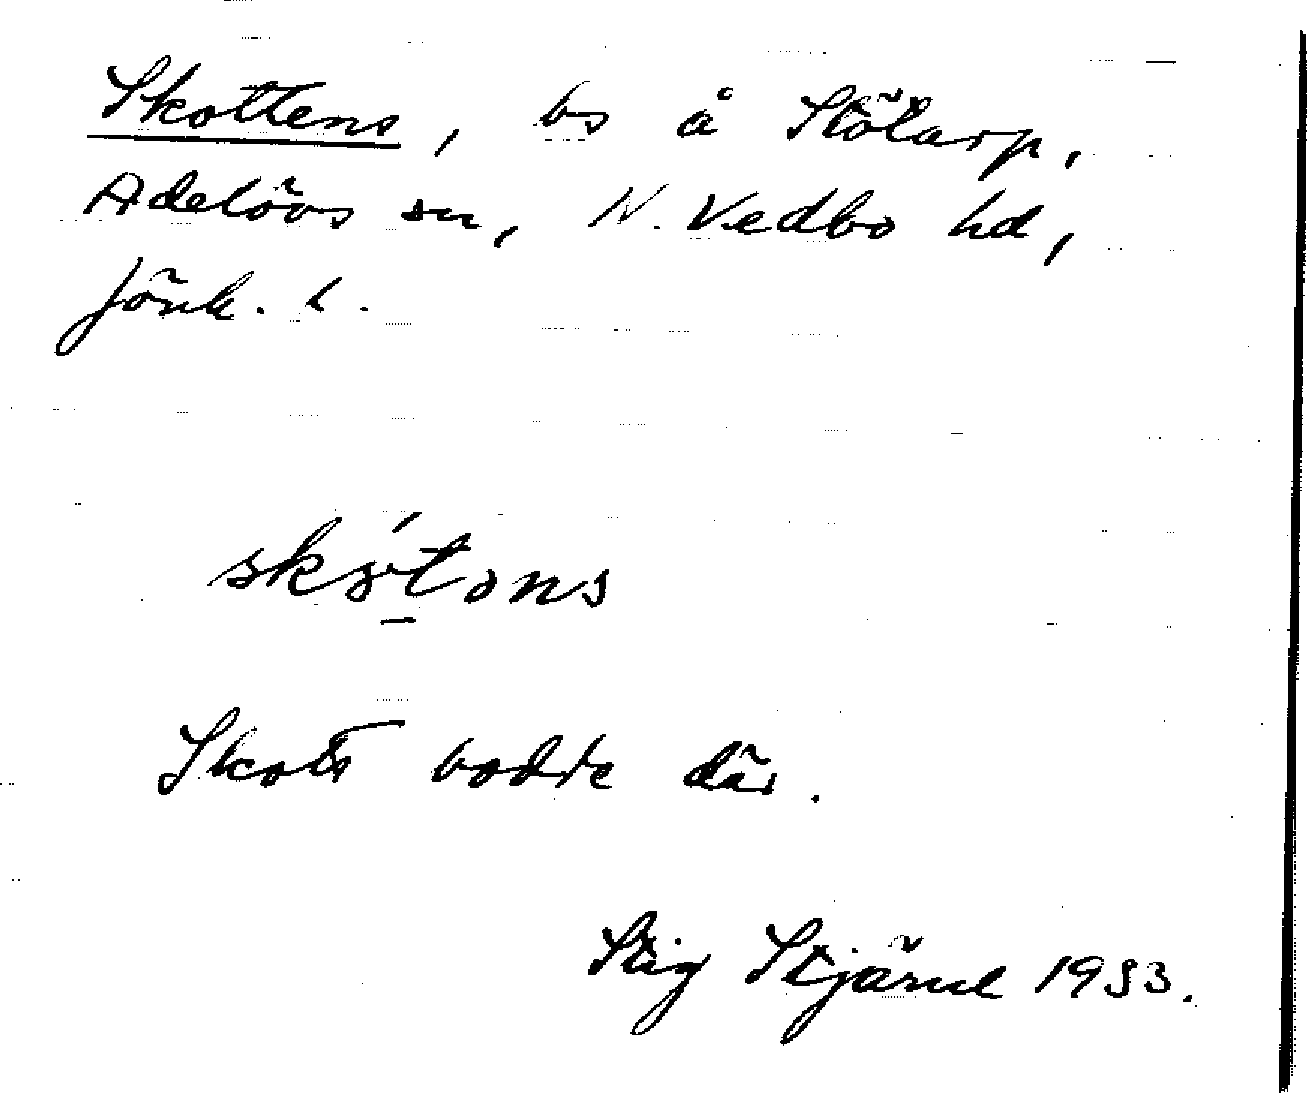 Skottens, bs å Stölarp,
Adelövs sn, N. Vedbo hd,
Jönk. l.
skótons
Skott bodde där.
Stig Stjärne 1933.